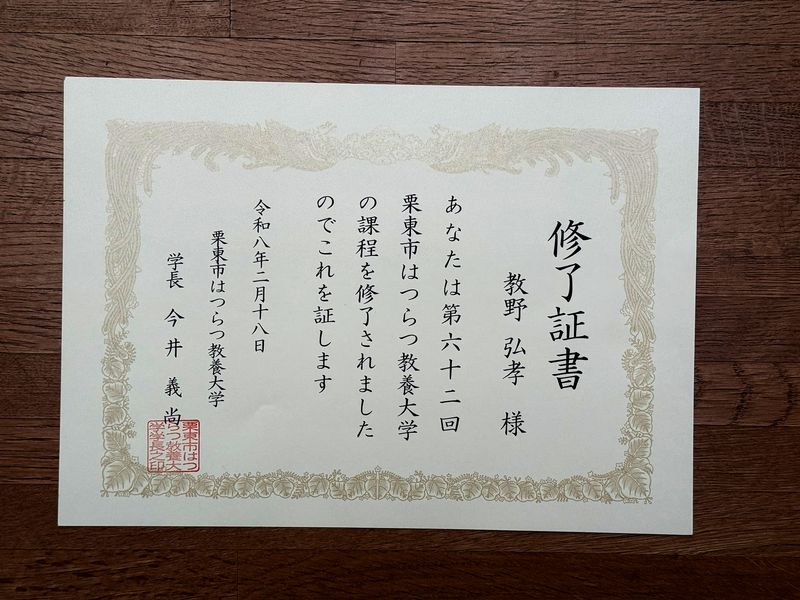 修了証書
教野 弘孝 様
あなたは第六十二回
栗東市はつらつ教養大学
の課程を修了されました
のでこれを証します
令和八年二月十八日
栗東市はつらつ教養大学
学長 今井 義尚
栗東市はつ
らつ教養大
学学長之印